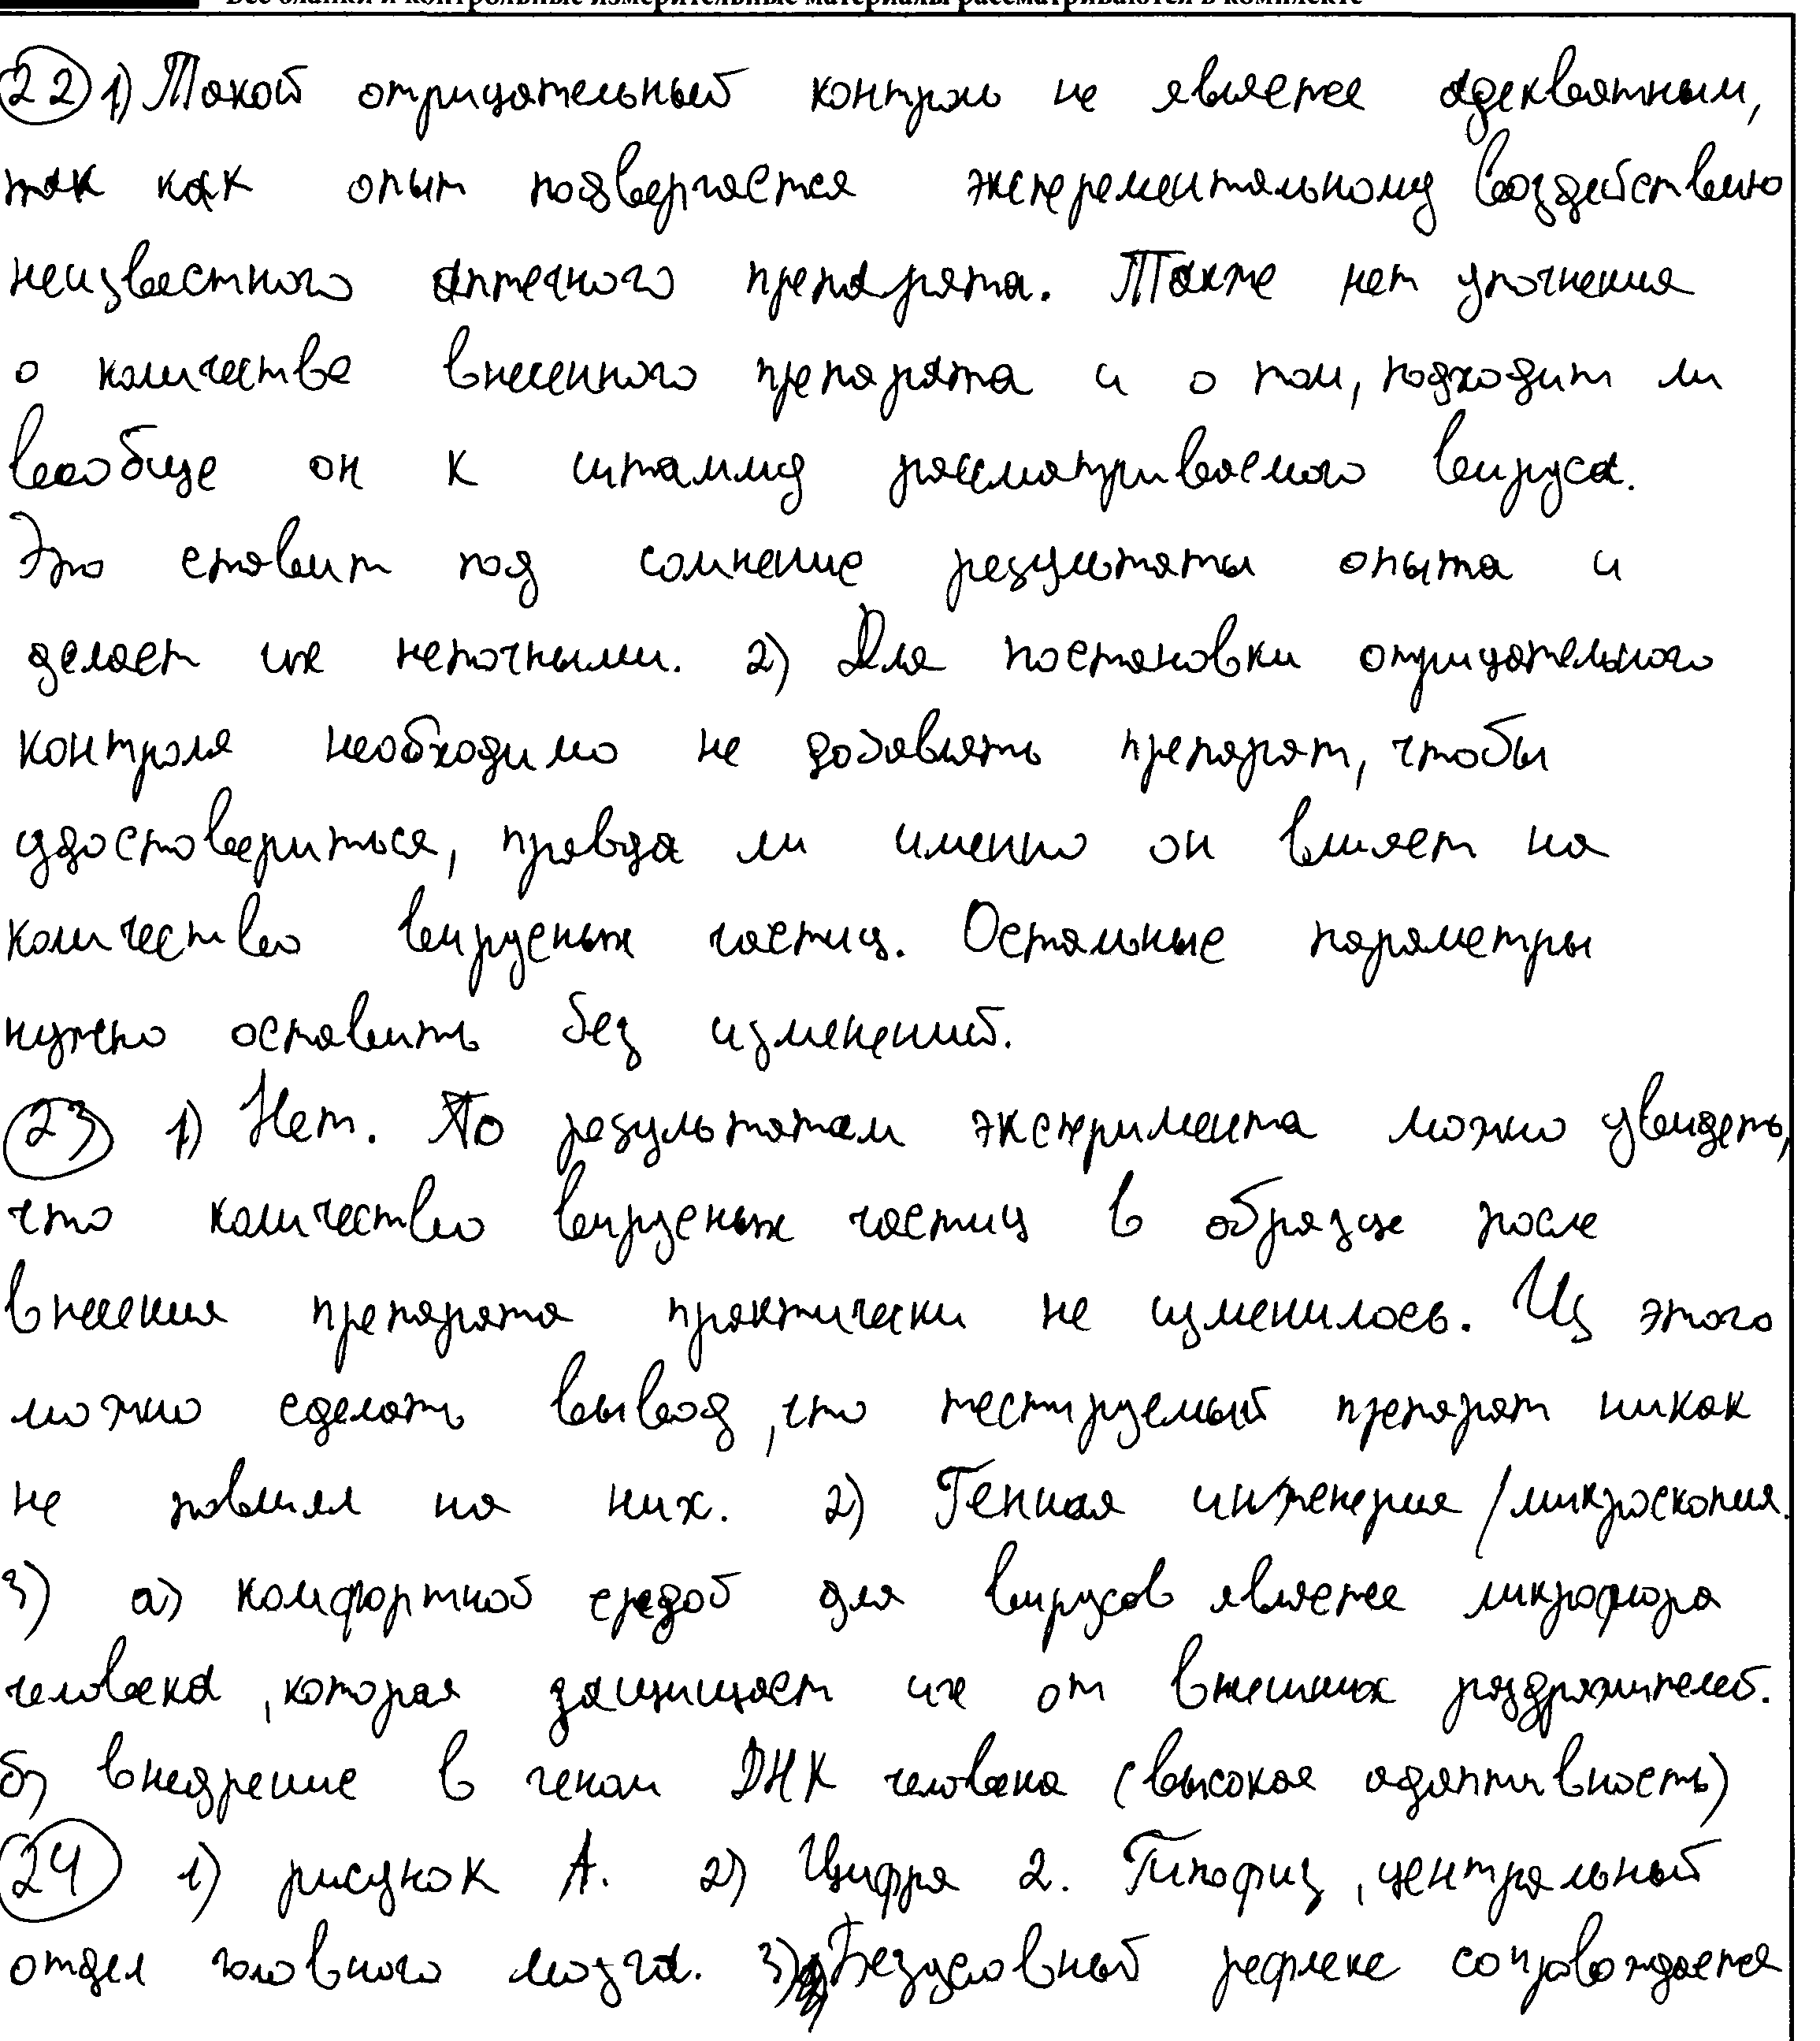 Все бланки и контрольные измерительные материалы рассматриваются в комплекте
22 1) Такой отрицательный контроль не является адекватным,
так как опыт подвергается эксперементальному воздействию
неизвестного аптечного препарата. Также нет уточнения
о количестве внесенного препарата и о том, подходит ли
вообще он к штамму рассматриваемого вируса.
Это ставит под сомнение результаты опыта и
делает их неточными. 2) Для постановки отрицательного
контроля необходимо не добавлять препарат, чтобы
удостовериться, правда ли именно он влияет на
количество вирусных частиц. Остальные параметры
нужно оставить без изменений.
23 1) Нет. По результатам эксперимента можно увидеть,
что количество вирусных частиц в образце после
внесения препарата практически не изменилось. Из этого
можно сделать вывод, что тестируемый препарат никак
не повлиял на них. 2) Генная инженерия / микроскопия.
3) а) комфортной средой для вирусов является микрофлора
человека, которая защищает их от внешних раздражителей.
б) внедрение в геном ДНК человека (высокая адаптивность)
24 1) рисунок А. 2) Цифра 2. Гипофиз, центральный
отдел головного мозга. 3) Безусловный рефлекс сопровождается